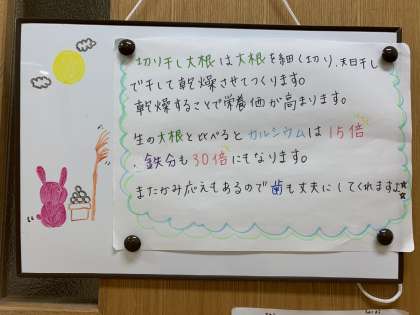 切り干し大根は大根を細く切り、天日干し
で干して乾燥させてつくります。
乾燥することで栄養価が高まります。
生の大根と比べるとカルシウムは15倍
、鉄分も30倍にもなります。
またかみ応えもあるので歯も丈夫にしてくれます♪